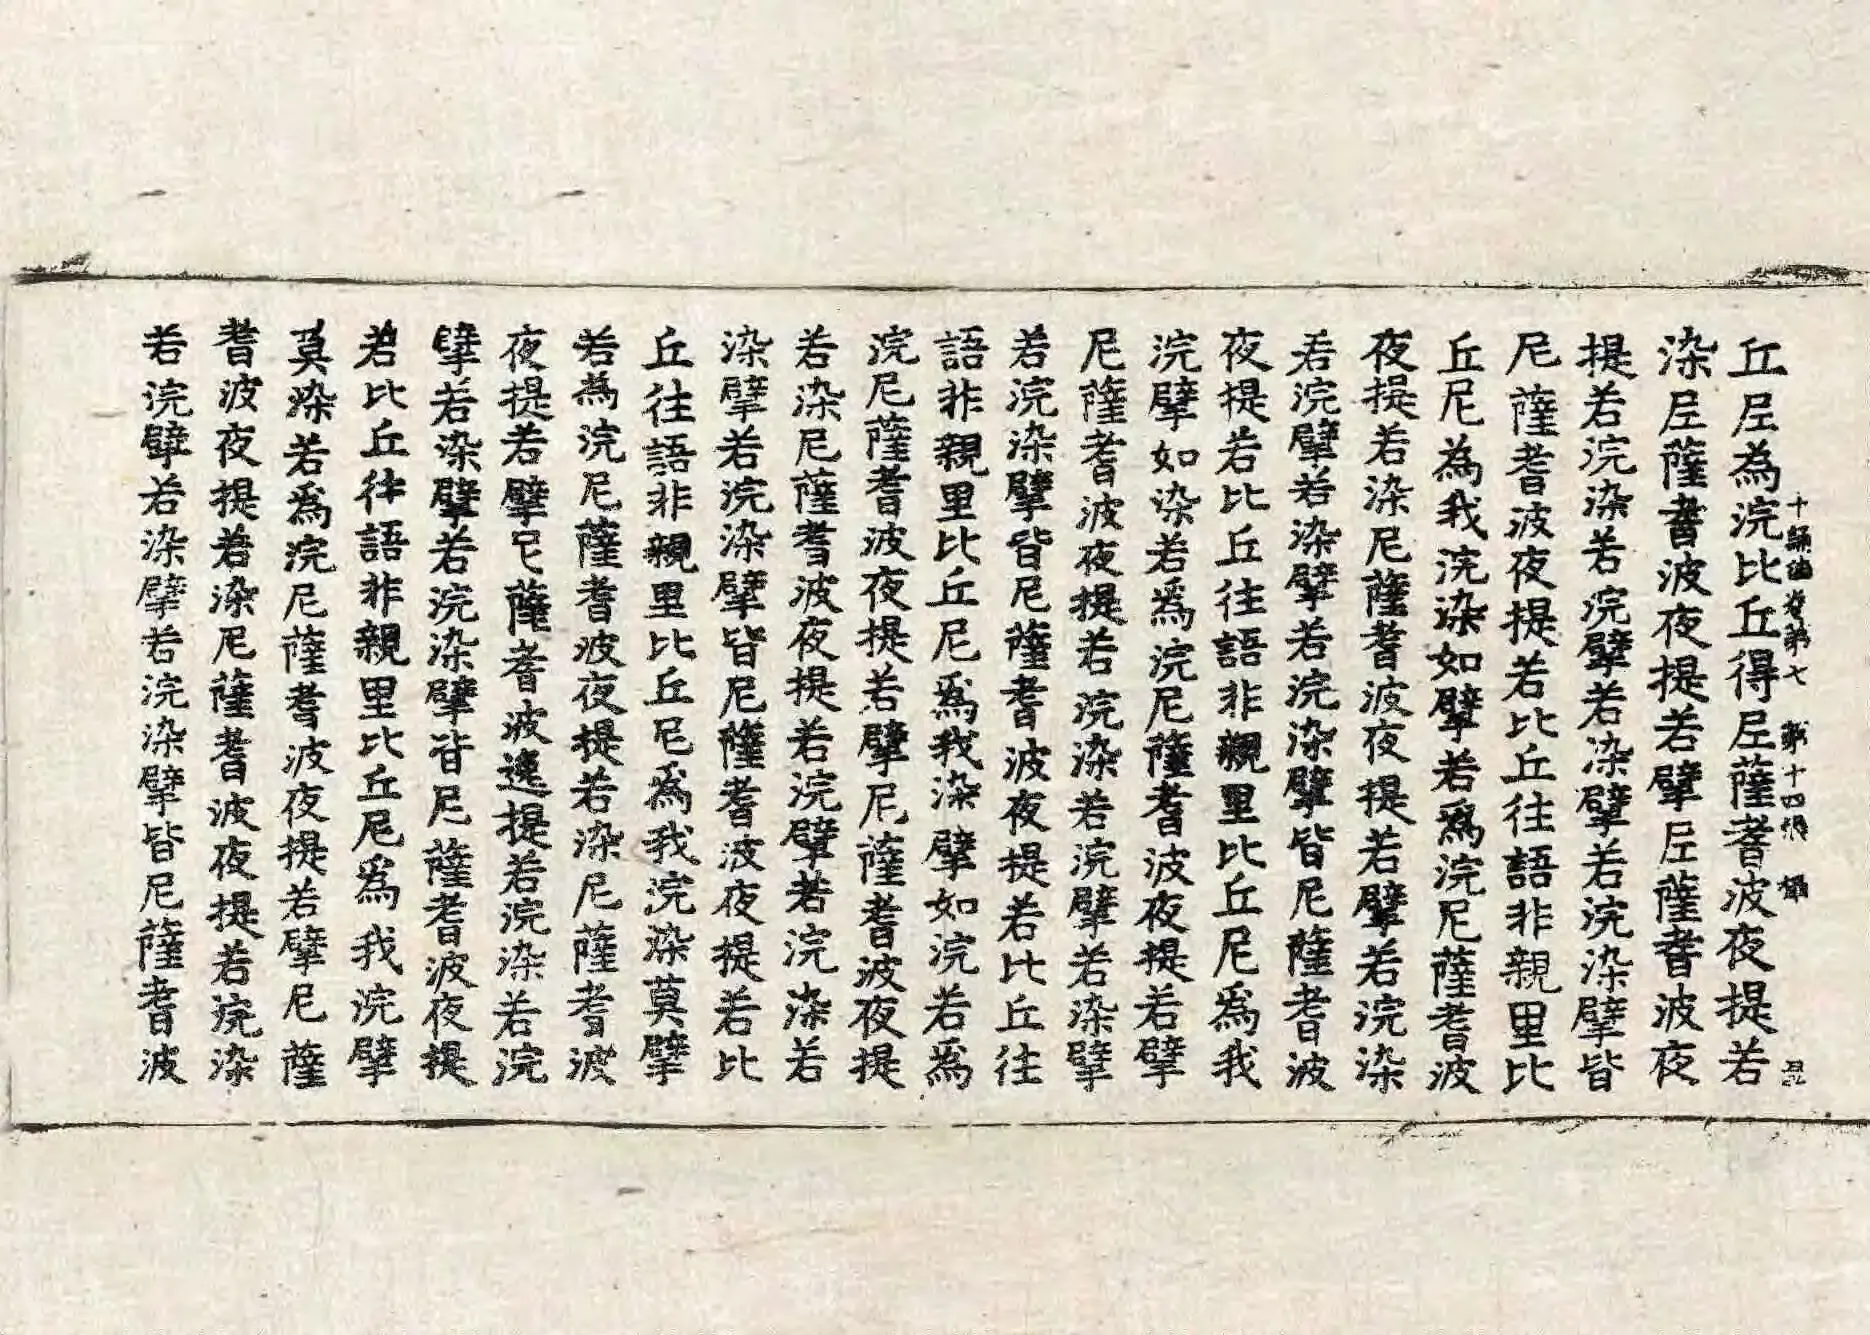 丘尼為浣比丘得尼薩耆波夜提若
染尼薩耆波夜提若擘尼薩耆波夜
提若浣染若浣擘若染擘若浣染擘皆
尼薩耆波夜提若比丘往語非親里比
丘尼為我浣染如擘若爲浣尼薩耆波
夜提若染尼薩耆波夜提若擘若浣染
若浣擘若染擘若浣染擘皆尼薩耆波
夜提若比丘往語非親里比丘尼爲我
浣擘如染若爲浣尼薩耆波夜提若擘
尼薩耆波夜提若浣染若浣擘若染擘
若浣染擘皆尼薩耆波夜提若比丘往
語非親里比丘尼爲我染擘如浣若爲
浣尼薩耆波夜提若擘尼薩耆波夜提
若染尼薩耆波夜提若浣擘若浣染若
染擘若浣染擘皆尼薩耆波夜提若比
丘往語非親里比丘尼爲我浣染莫擘
若為浣尼薩耆波夜提若染尼薩耆波
夜提若擘尼薩耆波逸提若浣染若浣
擘若染擘若浣染擘皆尼薩耆波夜提
若比丘往語非親里比丘尼爲我浣擘
莫染若爲浣尼薩耆波夜提若擘尼薩
耆波夜提若染尼薩耆波夜提若浣染
若浣擘若染擘若浣染擘皆尼薩耆波
十誦律卷第七 第十四張